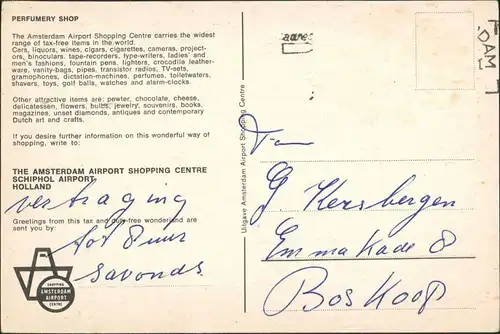 PERFUMERY SHOP
The Amsterdam Airport Shopping Centre carries the widest
range of tax-free items in the world:
Cars, liquors, wines, cigars, cigarettes, cameras, project-
ors, binoculars, tape-recorders, type-writers, ladies' and
men's fashions, fountain pens, lighters, crocodile leather-
ware, vanity-bags, pipes, transistor radios, TV-sets,
gramophones, dictation-machines, perfumes, toiletwaters,
shavers, toys, golf balls, watches and alarm-clocks.
Other attractive items are: pewter, chocolate, cheese,
delicatessen, flowers, bulbs, jewelry, souvenirs, books,
magazines, unset diamonds, antiques and contemporary
Dutch art and crafts.
If you desire further information on this wonderful way of
shopping, write to:
THE AMSTERDAM AIRPORT SHOPPING CENTRE
SCHIPHOL AIRPORT,
HOLLAND
vertraging
Greetings from this tax and duty-free wonderland are
sent you by:
tot 8 uur
savonds
SHOPPING
AMSTERDAM
AIRPORT
CENTRE
Uitgave Amsterdam Airport Shopping Centre
Fam
G. Kersbergen
Emmakade 8
Boskoop